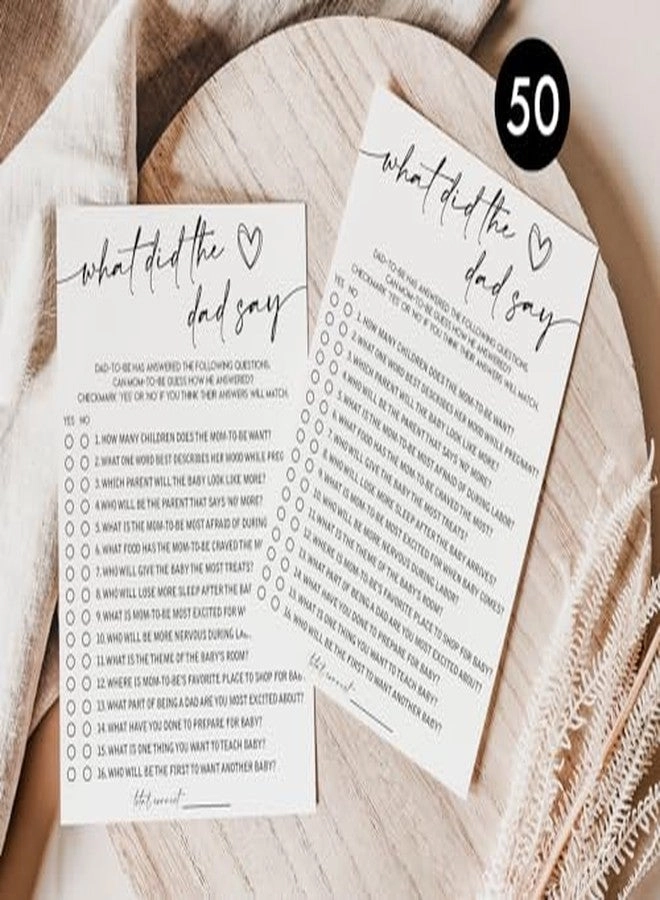 50
what did the
dad say
DAD-TO-BE HAS ANSWERED THE FOLLOWING QUESTIONS,
CAN MOM-TO-BE GUESS HOW HE ANSWERED?
CHECKMARK 'YES' OR 'NO' IF YOU THINK THEIR ANSWERS WILL MATCH.
YES NO
1. HOW MANY CHILDREN DOES THE MOM-TO-BE WANT?
2. WHAT ONE WORD BEST DESCRIBES HER MOOD WHILE PREG
3. WHICH PARENT WILL THE BABY LOOK LIKE MORE?
4. WHO WILL BE THE PARENT THAT SAYS 'NO' MORE?
5. WHAT IS THE MOM-TO-BE MOST AFRAID OF DURING
6. WHAT FOOD HAS THE MOM-TO-BE CRAVED THE M
7. WHO WILL GIVE THE BABY THE MOST TREATS?
8. WHO WILL LOSE MORE SLEEP AFTER THE BA
9. WHAT IS MOM-TO-BE MOST EXCITED FOR W
10. WHO WILL BE MORE NERVOUS DURING LA
11. WHAT IS THE THEME OF THE BABY'S ROOM?
12. WHERE IS MOM-TO-BE'S FAVORITE PLACE TO SHOP FOR BA
13. WHAT PART OF BEING A DAD ARE YOU MOST EXCITED ABOUT?
14. WHAT HAVE YOU DONE TO PREPARE FOR BABY?
15. WHAT IS ONE THING YOU WANT TO TEACH BABY?
16. WHO WILL BE THE FIRST TO WANT ANOTHER BABY?
total correct
what did the
dad say
DAD-TO-BE HAS ANSWERED THE FOLLOWING QUESTIONS,
CAN MOM-TO-BE GUESS HOW HE ANSWERED?
CHECKMARK 'YES' OR 'NO' IF YOU THINK THEIR ANSWERS WILL MATCH.
YES NO
1. HOW MANY CHILDREN DOES THE MOM-TO-BE WANT?
2. WHAT ONE WORD BEST DESCRIBES HER MOOD WHILE PREGNANT?
3. WHICH PARENT WILL THE BABY LOOK LIKE MORE?
4. WHO WILL BE THE PARENT THAT SAYS 'NO' MORE?
5. WHAT IS THE MOM-TO-BE MOST AFRAID OF DURING LABOR?
6. WHAT FOOD HAS THE MOM-TO-BE CRAVED THE MOST?
7. WHO WILL GIVE THE BABY THE MOST TREATS?
8. WHO WILL LOSE MORE SLEEP AFTER THE BABY ARRIVES?
9. WHAT IS MOM-TO-BE MOST EXCITED FOR WHEN BABY COMES?
10. WHO WILL BE MORE NERVOUS DURING LABOR?
11. WHAT IS THE THEME OF THE BABY'S ROOM?
12. WHERE IS MOM-TO-BE'S FAVORITE PLACE TO SHOP FOR BABY?
13. WHAT PART OF BEING A DAD ARE YOU MOST EXCITED ABOUT?
14. WHAT HAVE YOU DONE TO PREPARE FOR BABY?
15. WHAT IS ONE THING YOU WANT TO TEACH BABY?
16. WHO WILL BE THE FIRST TO WANT ANOTHER BABY?
total correct